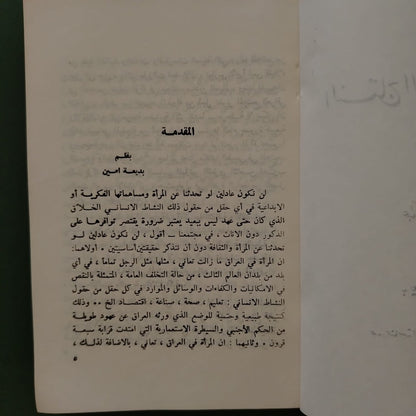 المقدمة
بقلم
بديعة امين
لن نكون عادلين لو تحدثنا عن المرأة ومساهماتها الفكرية أو
الابداعية في أي حقل من حقول ذلك النشاط الانساني الخلاق
الذي كان حتى عهد ليس ببعيد يعتبر ضرورة يقتصر توافرها على
الذكور دون الاناث ، في مجتمعنا ـ أقول ، لن نكون عادلين لو
تحدثنا عن المرأة والثقافة دون أن نتذكر حقيقتين أساسيتين ٠ أولاهما:
ان المرأة في العراق ما زالت تعاني ، مثلها مثل الرجل تماما ، في أي
بلد من بلدان العالم الثالث ، من حالة التخلف العامة ، المتمثلة بالنقص
في الامكانيات والكفاءات والوسائل والموارد في كل حقل من حقول
النشاط الانساني : تعليم ، صحة ، صناعة ، اقتصاد الخ ٠٠ وذلك
كنتيجة طبيعية وحتمية للوضع الذي ورثه العراق عن عهود طويلة
من الحكم الأجنبي والسيطرة الاستعمارية التي امتدت قرابة سبعة
قرون ٠ وثانيهما : ان المرأة في العراق ، تعاني ، بالاضافة لذلك ،
٥